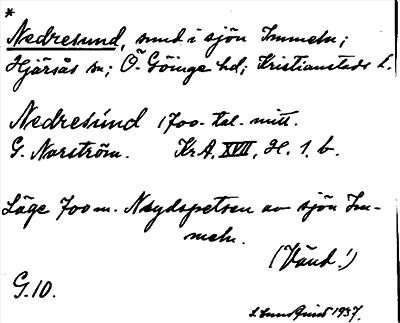 *
Nedresund, sund i sjön Immeln;
Hjärsås sn; Ö. Göinge hd; Kristianstads l.
Nedresund 1700-tal. mitt.
G. Norström. KrA. XVII, H. 1. b.
Läge 700 m. N sydspetsen av sjön Im-
meln.
(Vänd!)
G. 10.
1937.